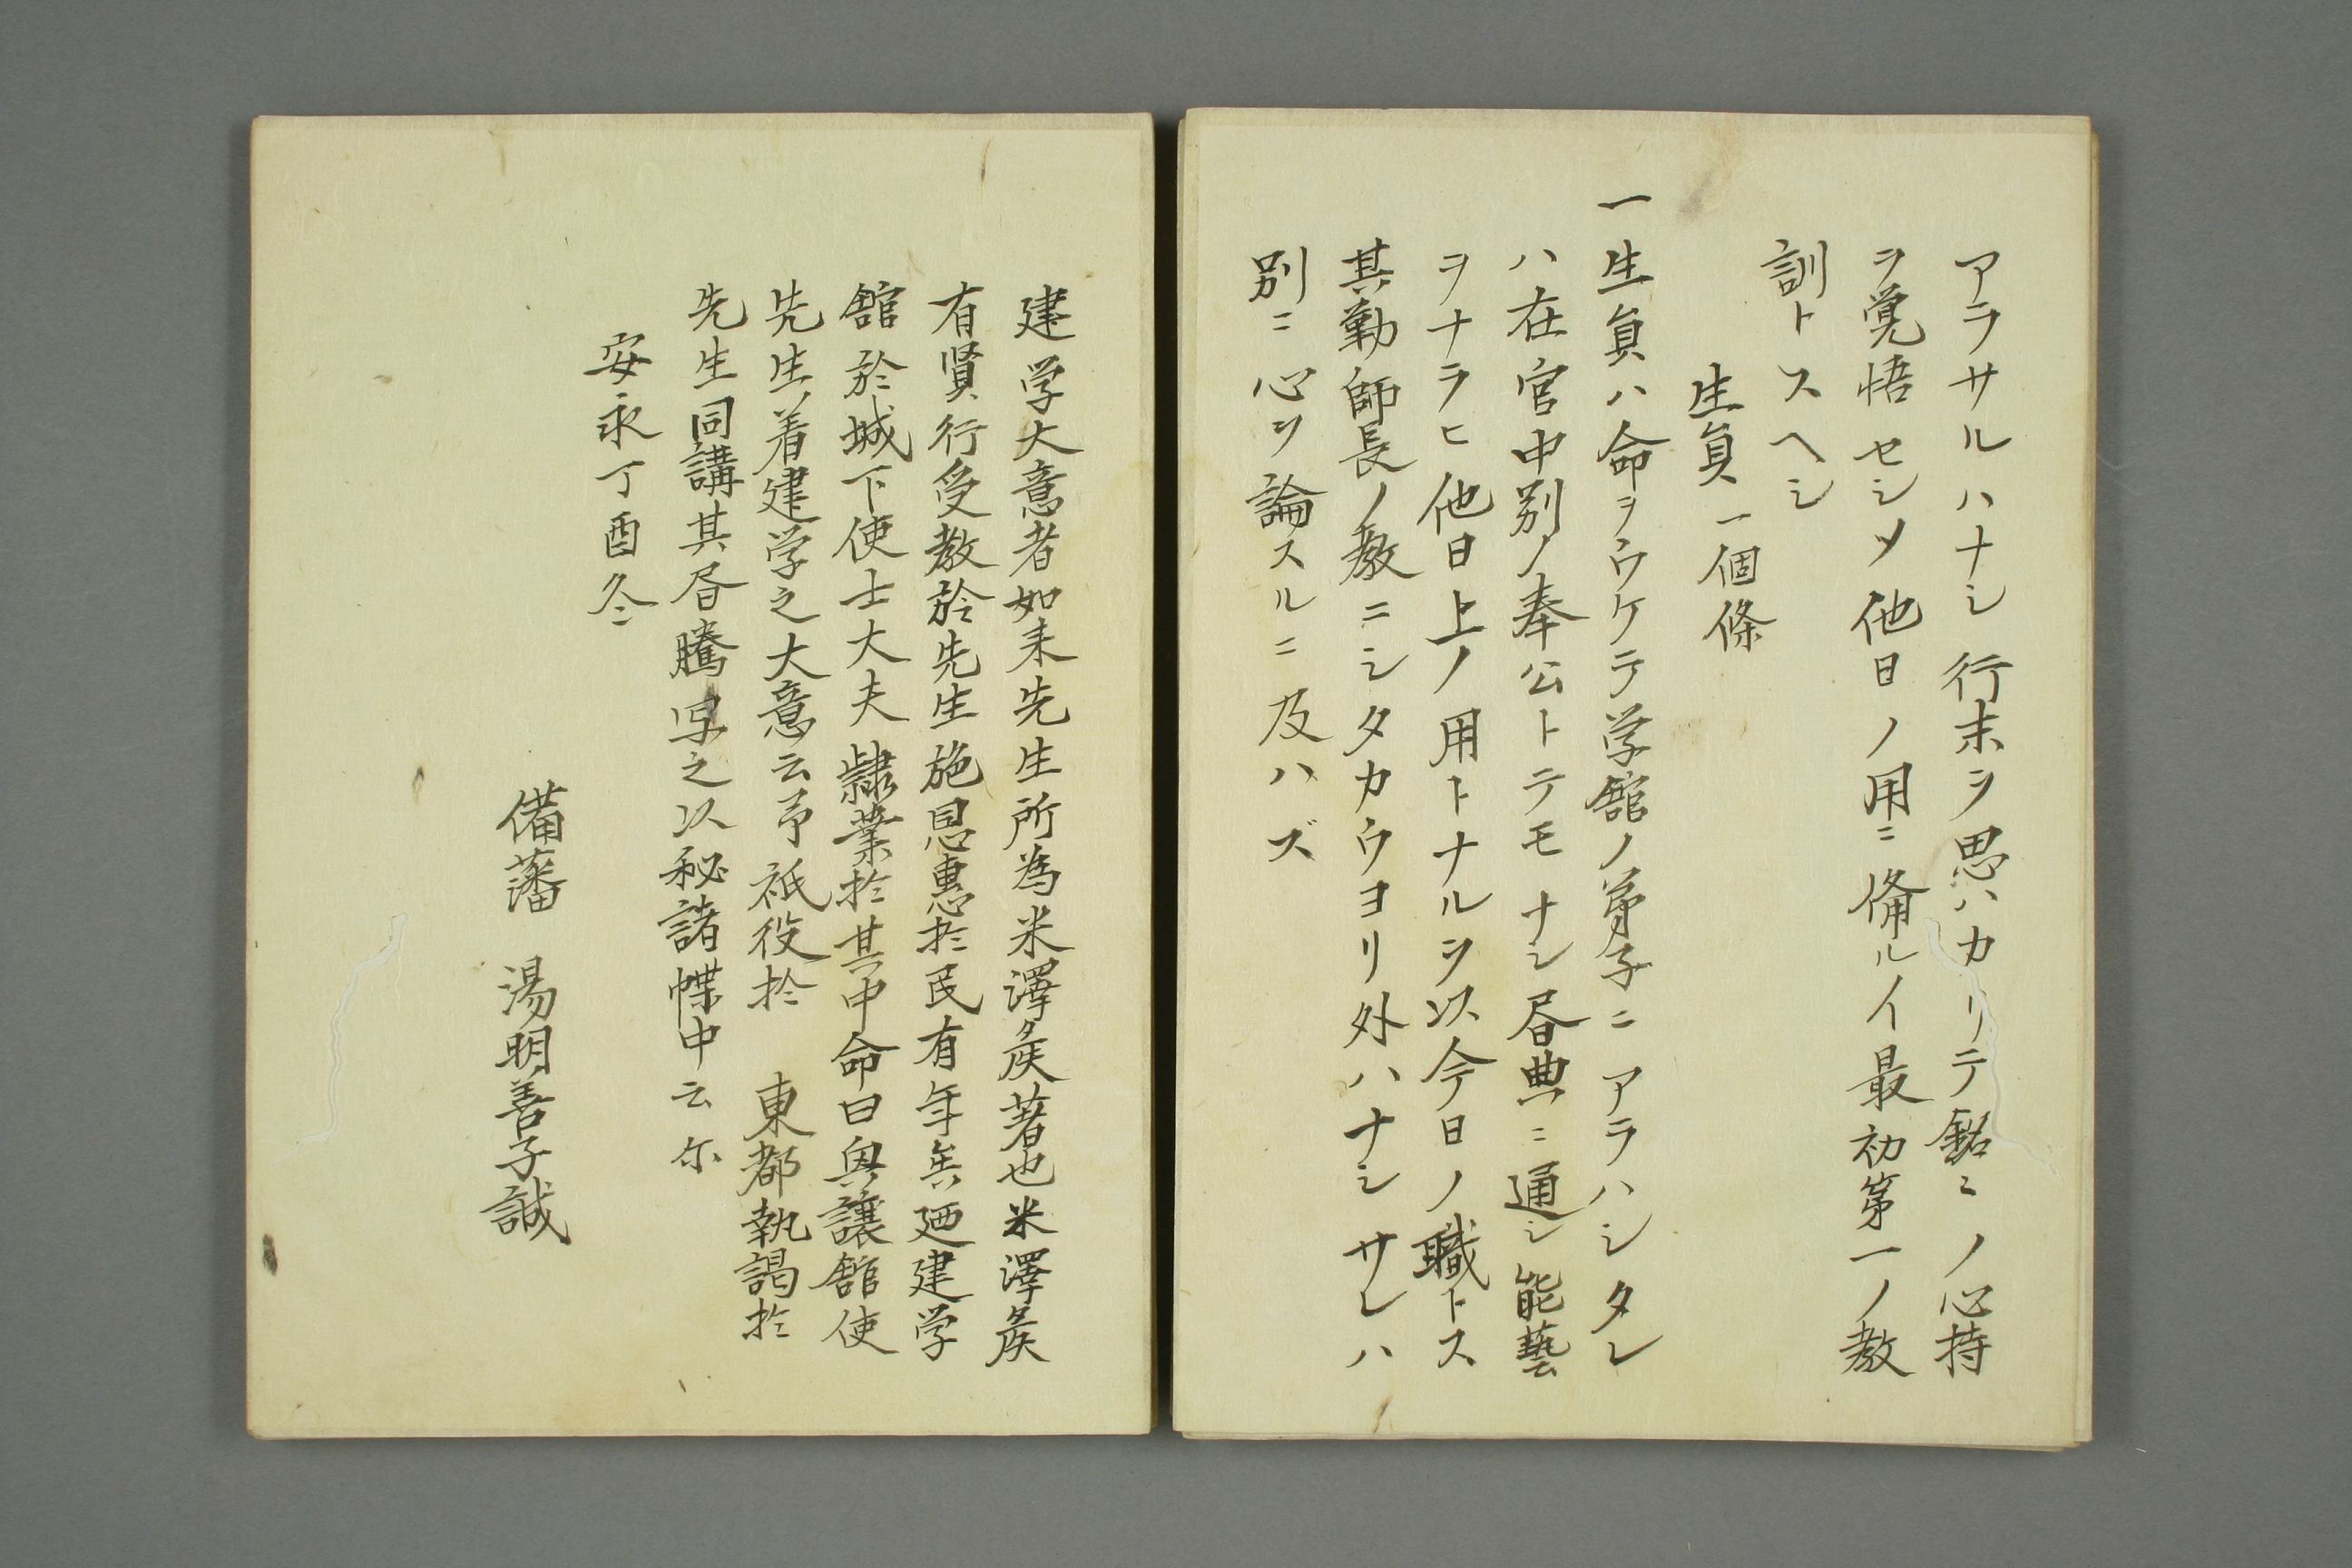 アラサルハナシ行末ヲ思ハカリテ銘〻ノ心持
ヲ覚悟セシメ他日ノ用ニ備ルヿ最初第一ノ教
訓トスヘシ
生員一個條
一生員ハ命ヲウケテ学舘ノ弟子ニアラハシタレ
ハ在官中別ノ奉公トテモナシ昼典ニ通シ能藝
ヲナラヒ他日上ノ用トナルヲ以今日ノ職トス
其勤師長ノ教ニシタカウヨリ外ハナシサレハ
別ニ心ヲ論スルニ及ハズ
建学大意者如来先生所為米澤矦著也米澤矦
有賢行受教於先生施恩惠於民有年矣廼建学
舘於城下使士大夫隷業於其中命曰與讓舘使
先生着建学之大意云予祇役於 東都執謁於
先生同講其昼騰写之以秘諸㡇中云尓
安永丁酉冬
備藩 湯明善子誠